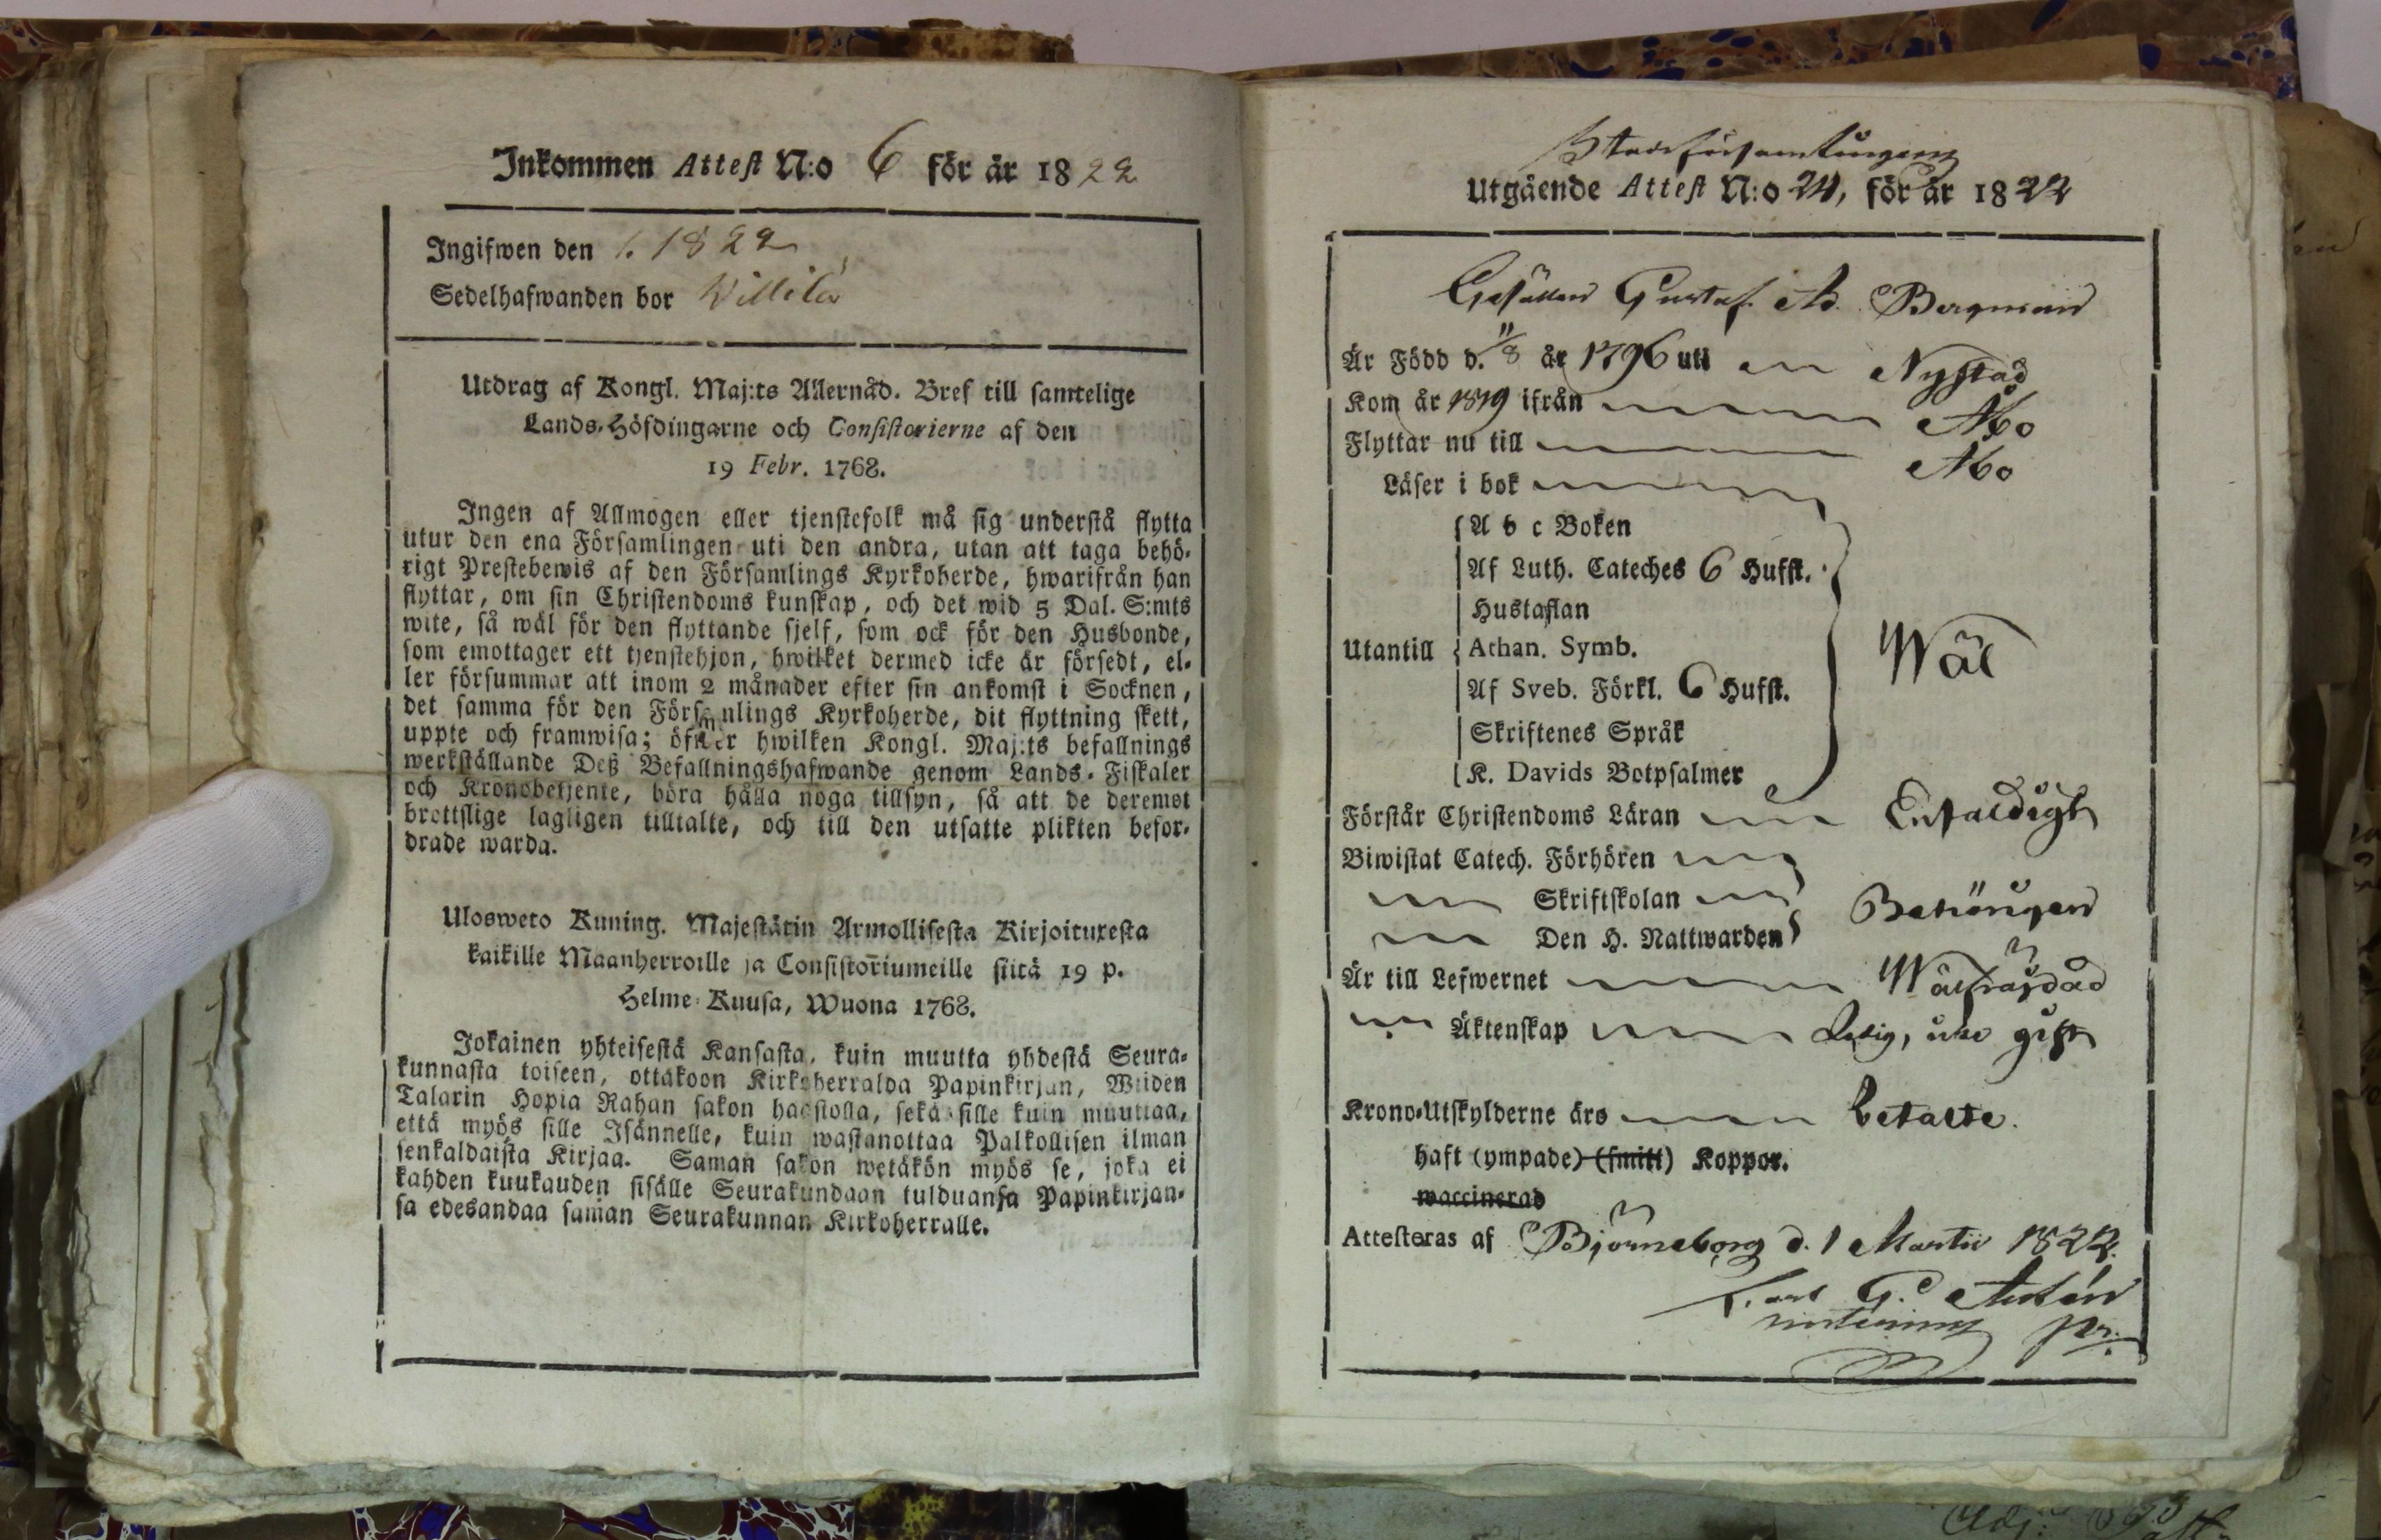 Inkommen Attest N:o 6 för år 1822
Ingifwen den 1822
Sedelhafwanden bor Willilä
Utdrag af Kongl. Maj:ts Allernåd. Bref till samtelige
Lands-Höfdingarne och Consistorierne af den
19 Febr. 1768.
Ingen af Allmogen eller tjenstefolk må sig understå flytta
utur den ena Församlingen uti den andra, utan att taga behö-
rigt Prestebewis af den Församlings Kyrkoherde, hwarifrån han
flyttar, om sin Christendoms kunskap, och det wid 5 Dal. S:mts
wite, så wäl för den flyttande sjelf, som ock för den Husbonde,
som emottager ett tjenstehjon, hwilket dermed icke är försedt, el-
ler försummar att inom 2 månader efter sin ankomst i Socknen,
det samma för den Församlings Kyrkoherde, dit flyttning skett,
uppte och framwisa; öfwer hwilken Kongl. Maj:ts befallnings
werkställande Deß Befallningshafwande genom Lands-Fiskaler
och Kronobetjente, böra hålla noga tillsyn, så att de deremot
brottslige lagligen tilltalte, och till den utsatte plikten befor-
drade warda.
Ulosweto Kuning. Majestätin Armollisesta Kirjoituxesta
kaikille Maanherroille ja Consistoriumeille siitä 19 p.
Helme-Kuusa, Wuona 1768.
Jokainen yhteisestä Kansasta, kuin muutta yhdestä Seura-
kunnasta toiseen, ottakoon Kirkoherralda Papinkirjan, Wiiden
Talarin Hopia Rahan sakon haastolla, sekä sille kuin muuttaa,
että myös sille Isännelle, kuin wastanottaa Palkollisen ilman
senkaldaista Kirjaa. Saman sakon wetäkön myös se, joka ei
kahden kuukauden sisälle Seurakundaan tulduansa Papinkirjan-
sa edesandaa saman Seurakunnan Kirkoherralle.
Stadsförsamlingens
Utgående Attest N:o 24, för år 1822
Gesällen Gustaf Ad. Bergman
Är Född d. 11/8 år 1796 uti Nystad
Kom år 1819 ifrån Åbo
Flyttar nu till Åbo
Läser i bok
A b c Boken
Af Luth. Cateches 6 Hufst.
Hustaflan
Utantill Athan. Symb. Wäl
Af Sveb. Förkl. 6 Hufst.
Skriftenes Språk
K. Davids Botpsalmer
Förstår Christendoms Läran Enfaldigt
Biwistat Catech. Förhören
Skriftskolan Behörigen
Den H. Nattwarden
Är till Lefwernet Wälfrejdad
Äktenskap Ledig, icke gift
Krono-Utskylderne äro betalte.
haft (ympade) (smitt) Koppor.
waccinerad
Attesteras af Björneborg d. 1 Martii 1822.
Carl G.